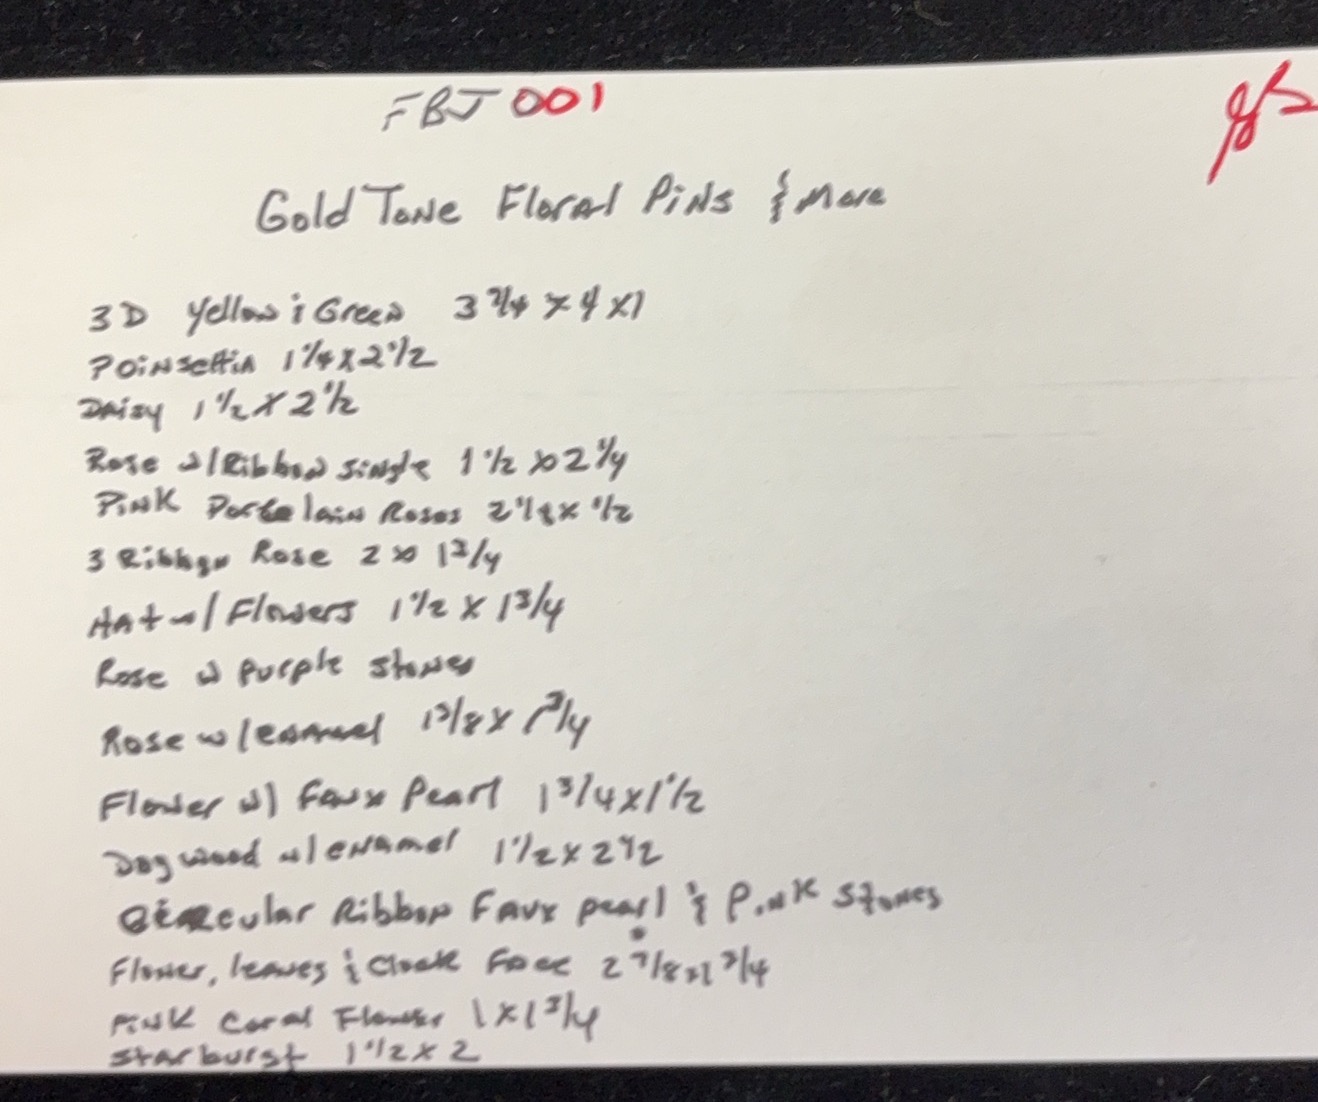 FBJ 001
Gold Tone Floral Pins & More
3D Yellow & Green 3 3/4 x 4 x 1
Poinsettia 1 1/4 x 2 1/2
Daisy 1 1/2 x 2 1/2
Rose w/Ribbon single 1 1/2 x 2 1/4
Pink Porcelain Roses 2 1/8 x 1/2
3 Ribbon Rose 2 x 1 3/4
Hat w/ Flowers 1 1/2 x 1 3/4
Rose w purple stones
Rose w/enamel 1 3/8 x 1 3/4
Flower w/ faux Pearl 1 3/4 x 1 1/2
Dogwood w/enamel 1 1/2 x 2 1/2
Circular Ribbon Faux pearl & Pink Stones
Flower, leaves & Clock Face 2 7/8 x 1 3/4
Pink Coral Flower 1 x 1 3/4
Starburst 1 1/2 x 2